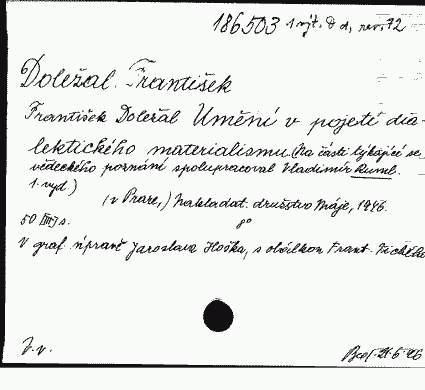 186503 1 výt. D d, rev. 72
Doležal František
František Doležal Umění v pojetí dia-
lektického materialismu (Na části týkající se
vědeckého poznání spolupracoval Vladimír Ruml.
1. vyd.)
(V Praze,) Nakladat. družstvo Máje, 1946.
50 s. 8°
V graf. úpravě Jaroslava , s obálkou Frant. Tichého
J. v.
21.6.46